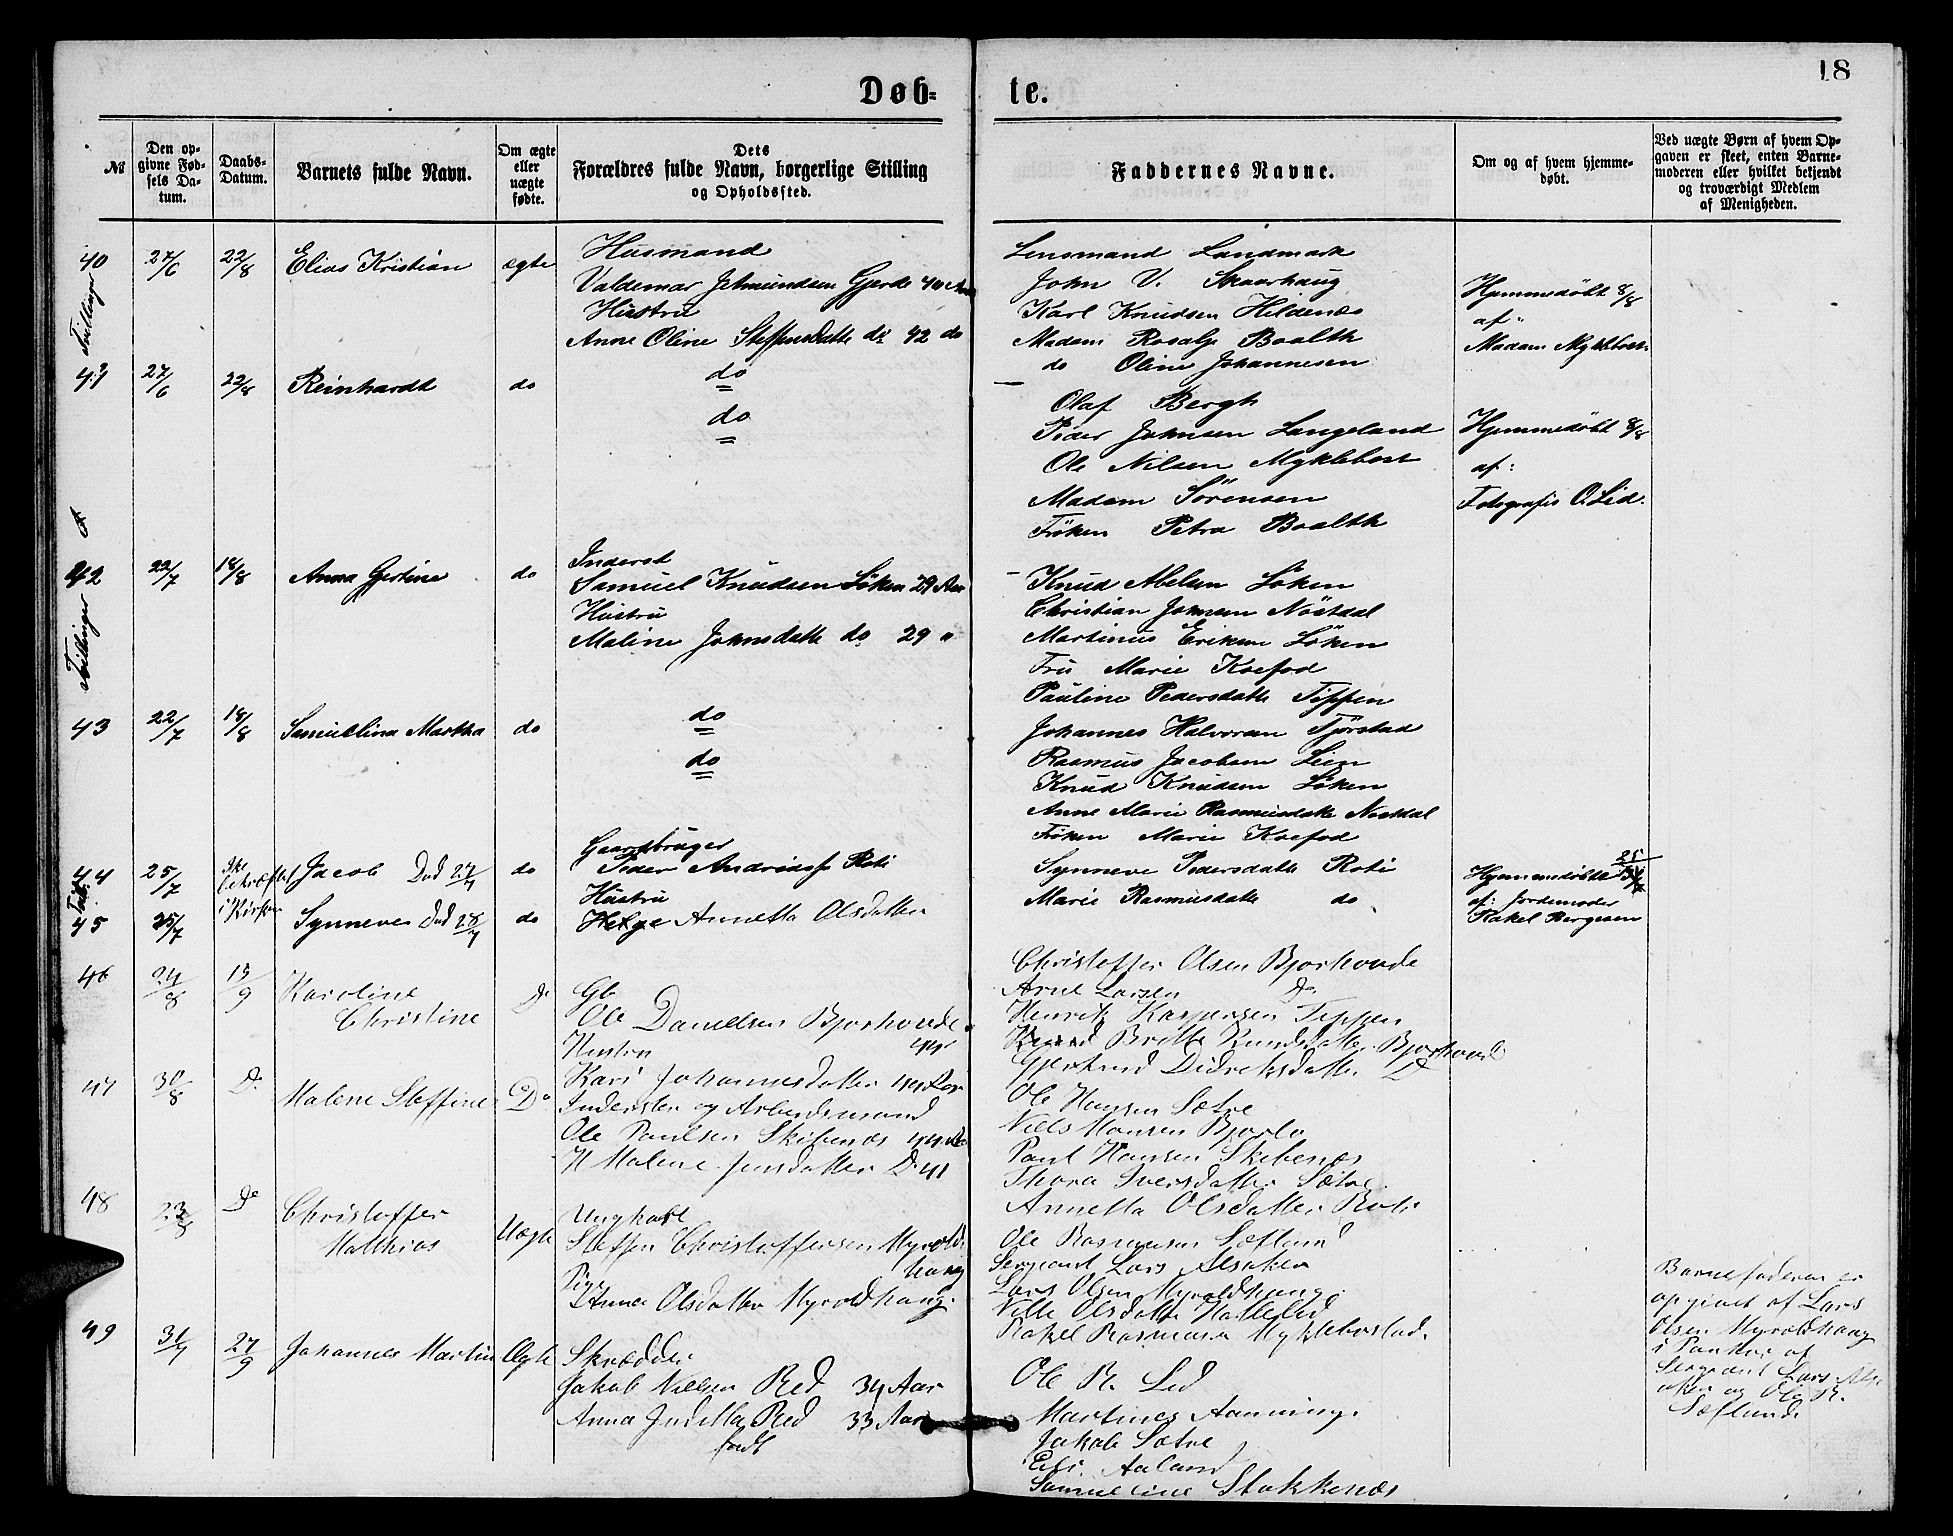 18
Døb-
te.
№
Den op-
givne Fød-
sels Da-
tum.
Daabs-
Datum.
Barnets fulde Navn.
Om ægte
eller
uægte
fødte.
Dets
Forældres fulde Navn, borgerlige Stilling
og Opholdssted.
Faddernes Navne.
Om og af hvem hjemme-
døbt.
Ved uægte Børn af hvem Op-
gaven er skeet, enten Barne-
moderen eller hvilket bekjendt
og troværdigt Medlem
af Menigheden.
40 27/6 22/8 Elias Kristian ægte
Husmand
Valdemar Gjerde 40 Aar
Hustru
Anne Oline Steffensdatte do 42 do
Lensmand Landmark
John V. Skaarhaug
Karl Knudsen Hildenæs
Madam Rosalje Baalth
do Oline Johannesen
Hjemmedøbt 8/8
af
Madam Myklebost
Tvillinger
41 27/6 22/8 Reinhardt do
do
do
Olaf Bergh
Peder Johnsen Langeland
Ole Nilsen Myklebost
Madam Sörensen
Fröken Petra Baalth
Hjemmedøbt 8/8
af:
Fotografis O. Lid.
42 22/7 18/8 Anna Gertine do
Inderst
Samuel Knudsen Löken 29 Aar
Hustru
Maline Johnsdatte do 29 "
Knud Abelsen Löken
Christian Johnsen Nöstdal
Martinus Eriksen Löken
Fru Marie Koefod
Pauline Pedersdatte Tippen
Tvillinger
43 22/7 18/8 Samuelina Martha do
do
do
Johannes Halvorsen Tjörstad
Rasmus Jacobsen Leen
Knud Knudsen Löken
Anne Marie Rasmusdatte Nöstdal
Fröken Marie Koefod
44 25/7 i Kirken Jacob Död 27/7 do
Gaardbruger
Peder Andreass Roti
Hustru
Annetta Olsdatter
Synneve Pedersdatte Roti
Marie Rasmusdatte do
Hjemmedøbt 25/7
af: Jordemoder
Rakel Bergesen
45 25/7 Synneve Död 28/7 do
46 24/8 13/9 Karoline
Christine Do
Gb
Ole Danielsen Bjorhovde
Hustru
Kari Johannesdatter
Christoffer Olsen Bjorhovde
Arne Larsen Do
Henrik Kaspersen Tippen
Britte Knudsdatter Bjorhovde
Gjertrud Didriksdatter Do
47 30/8 Do Malene Steffine Do
Inderster og Arbeidsmand
Ole Paulsen Skibenæs 44 Aar
H Malene Jensdatter Do 41
Ole Hansen Sætre
Niels Hansen Bjorlo
Paul Hansen Skibenæs
Thora Iversdatter Sætre
Annetta Olsdatter Roti
48 23/8 Do Christoffer
Matthias Uægte
Ungkarl
Steffen Christoffersen Myrold-
haug
Pige
Anne Olsdatter Myroldhaug.
Ole Rasmusen Sætlund
Sergeant Lars Alsaker
Lars Olsen Myroldhaug
Olsdatter
Rakel Rasmusen Myklebostad.
Barnefaderen er
opgivet af Lars
Olsen Myroldhaug
af
Sergeant Lars Als-
aker og Ole R.
Sætlund.
49 31/7 27/9 Johannes Martin Ægte
Skrædder
Jakob Nielsen Red 34 Aar
Anna Red 33 Aar
født
Ole R. Lid
Martines Aanning.
Jakob Sætre
Eli Aaland
Samueline Stokkenæs